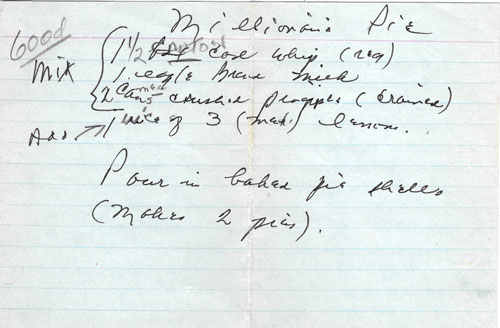 Millionair Pie
Good
1 1/2 carton cool whip (reg)
Mix
1 eagle brand milk
2 cans crushed pineapple (drained)
Add → 1 juice of 3 (med.) lemons.
Pour in baked pie shells
(Makes 2 pies).